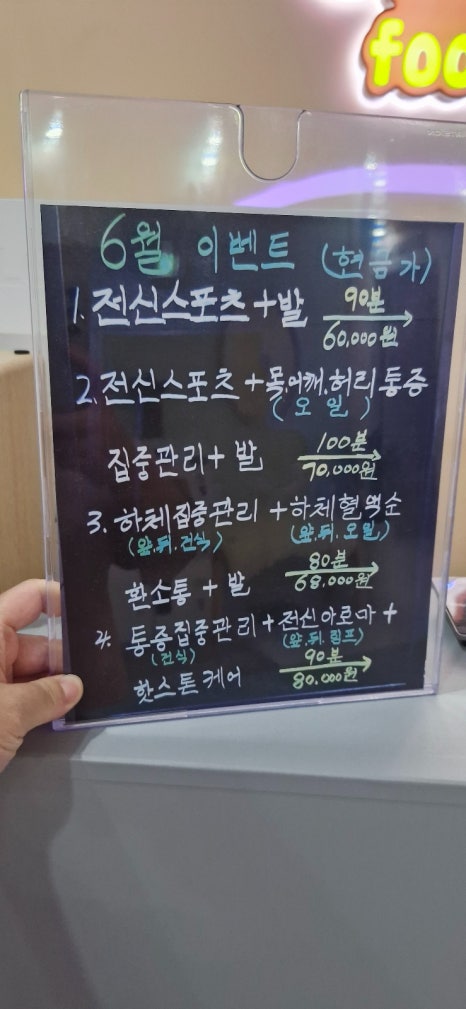 foo
6월 이벤트 (현금가)
1. 전신스포츠 + 발 90분
60,000원
2. 전신스포츠 + 목.어깨.허리통증
(오일)
집중관리 + 발 100분
70,000원
3. 하체집중관리 + 하체혈액순
(앞.뒤.건식) (앞.뒤.오일)
환소통 + 발 80분
68,000원
4. 통증집중관리 + 전신아로마 +
(건식) (앞.뒤.림프)
핫스톤케어 90분
80,000원